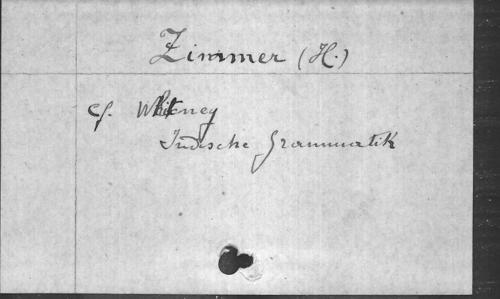 Zimmer (H.)
cf. Whitney
Indische Grammatik